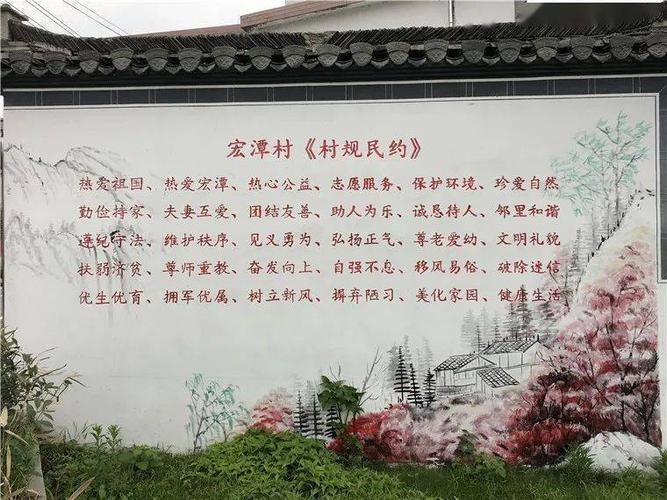 宏潭村《村规民约》
热爱祖国、热爱宏潭、热心公益、志愿服务、保护环境、珍爱自然
勤俭持家、夫妻互爱、团结友善、助人为乐、诚恳待人、邻里和谐
遵纪守法、维护秩序、见义勇为、弘扬正气、尊老爱幼、文明礼貌
扶弱济贫、尊师重教、奋发向上、自强不息、移风易俗、破除迷信
优生优育、拥军优属、树立新风、摒弃陋习、美化家园、健康生活